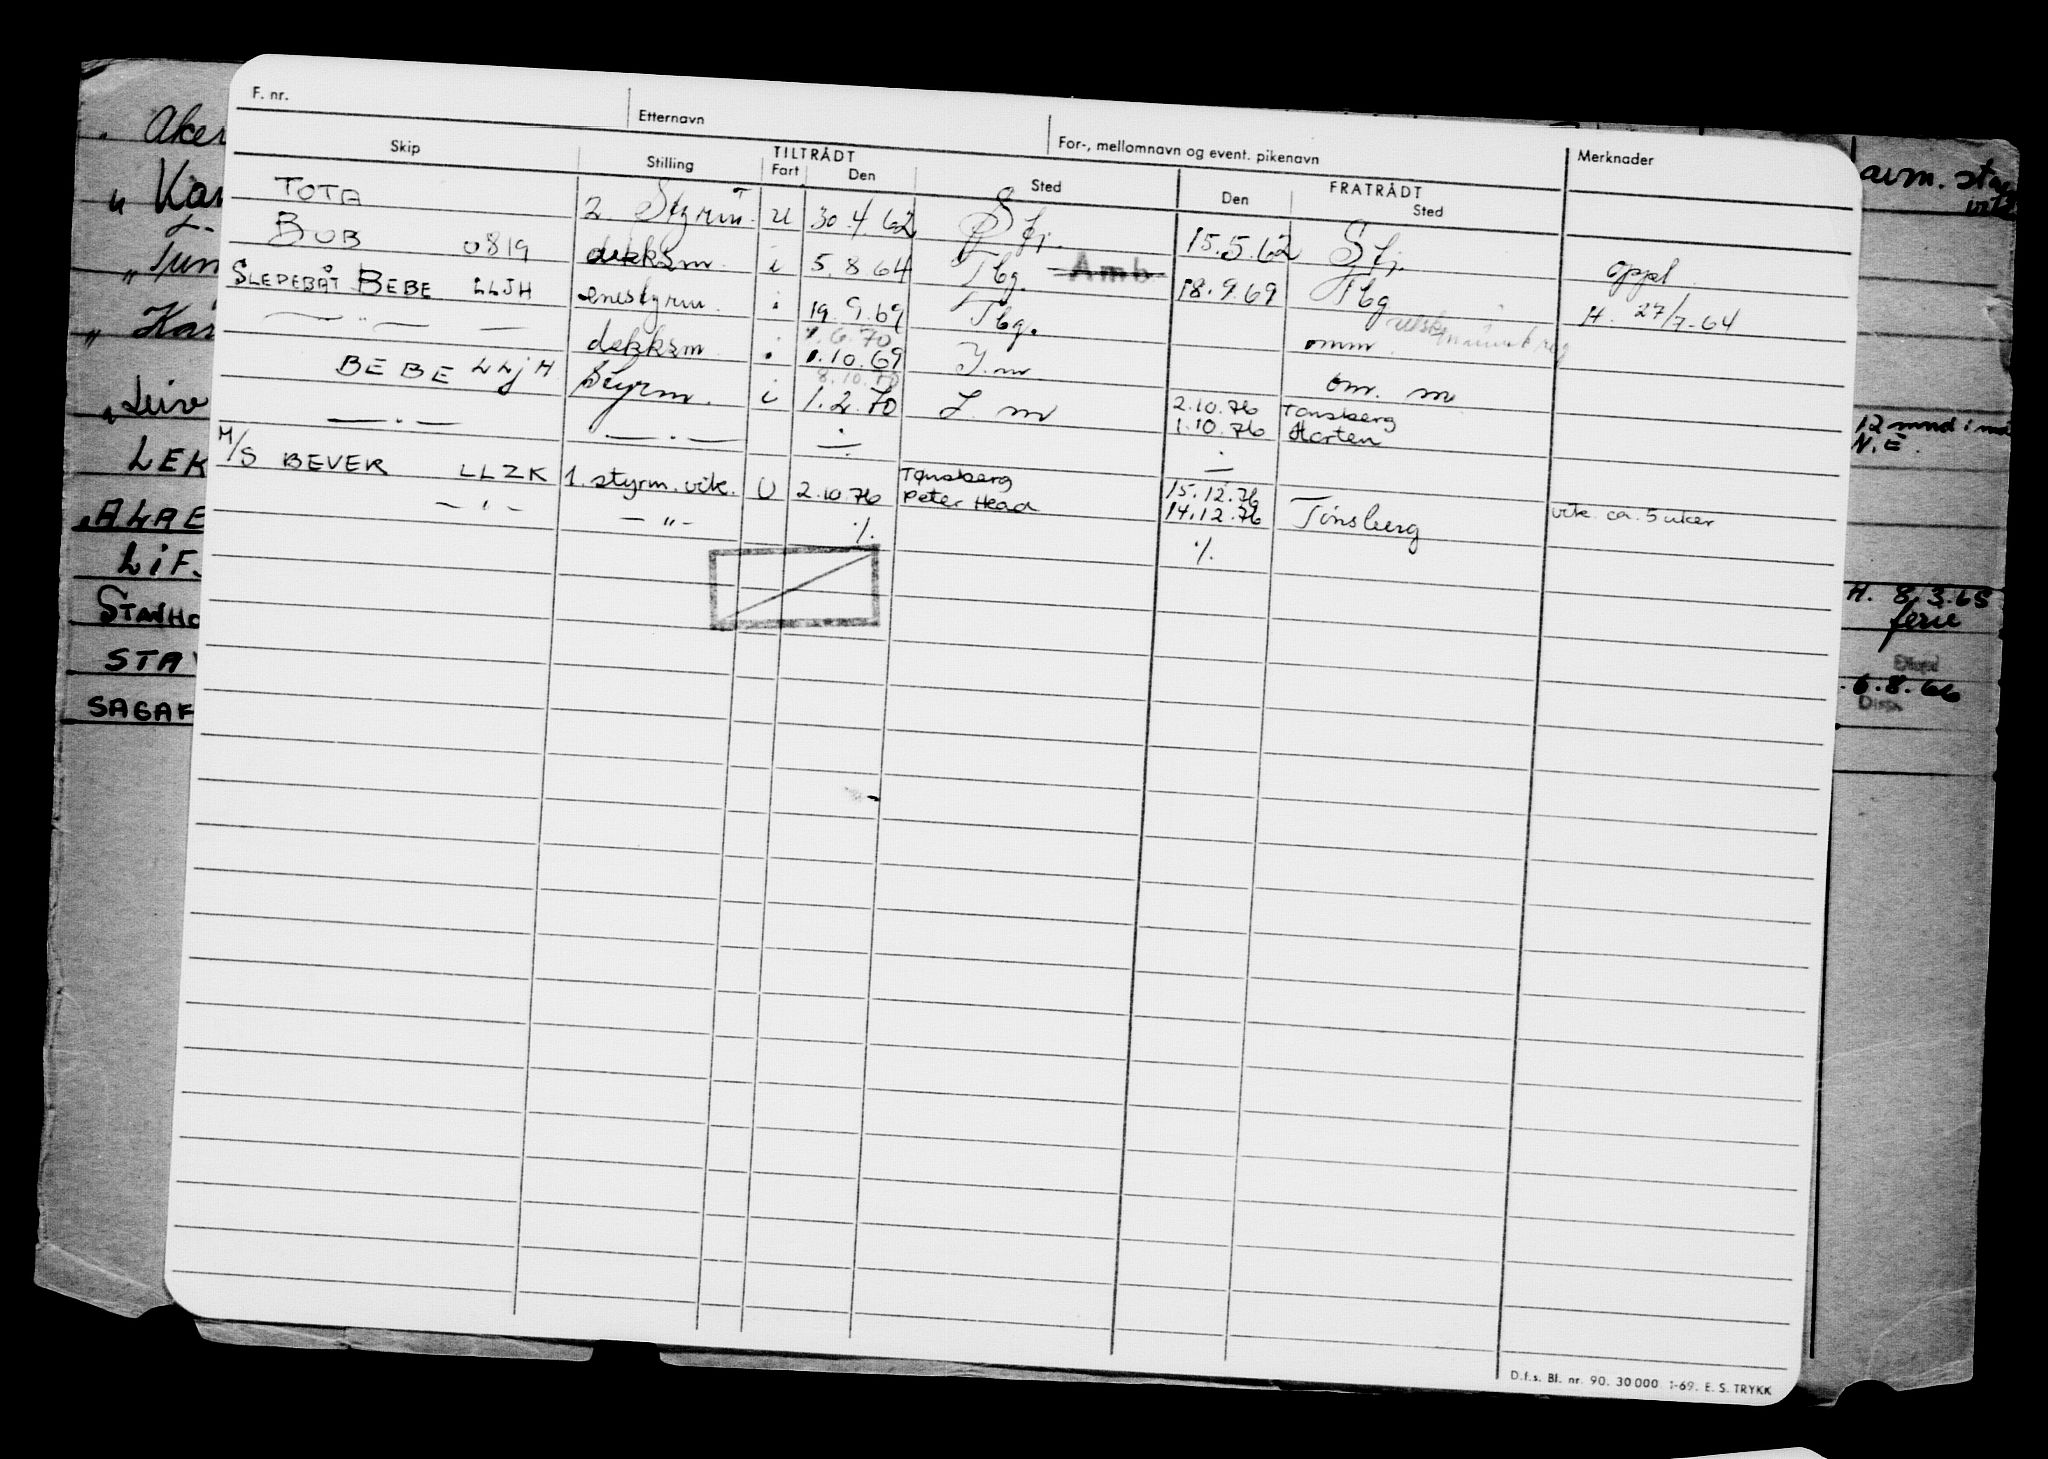 F. nr. Etternavn For-, mellomnavn og event. pikenavn Merknader
Skip Stilling TILTRÅDT Fart Den Sted FRATRÅDT Den Sted
TOTA 2. Styrm. u 30.4.62 Stj. 15.5.62 Stj. oppl
BUB U819 dekksm. i 5.8.64 Tbg. Amb 18.9.69 Tbg H. 27/7-64
SLEPEBÅT BEBE LLJH enestyrm. i 19.9.69 Tbg. omm.
— " — — dekksm. 1.10.69 om. m
BEBE LLJH Styrm. i 1.2.70 2.10.76 Tønsberg
1.10.76 Horten
— . — — . —
M/S BEVER LLZK 1. styrm. vik. U 2.10.76 Tønsberg 15.12.76
Peter Head 14.12.76 Tønsberg vik. ca. 5 uker
— " — — " — ./. ./.
D.f.s. Bl. nr. 90. 30 000. 1-69. E. S. TRYKK
Aker
Kar
Leiv
LEK
ALAE
LIF
STANHO
STAV
SAGAF
avm.
12 mnd i
N.E.
H. 8.3.65
ferie
6.8.66